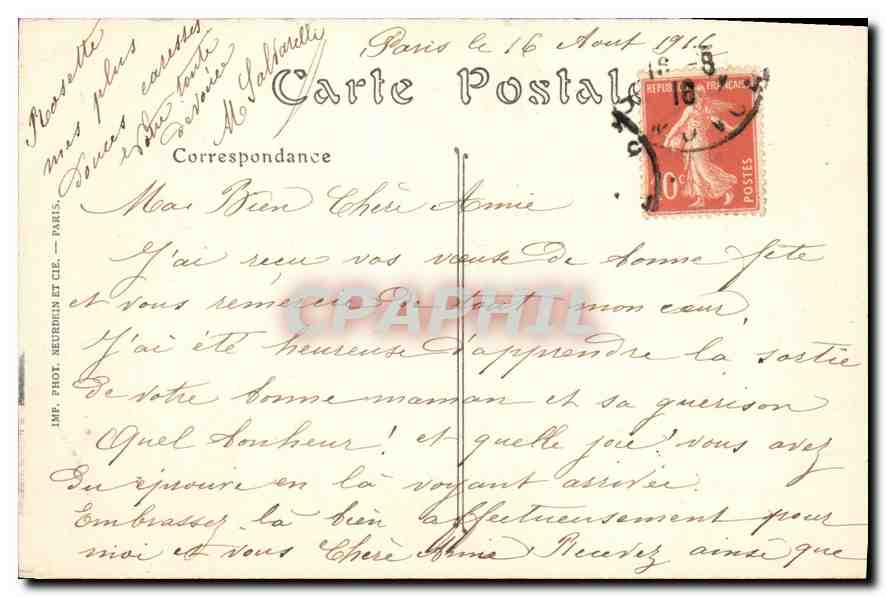 Paris le 16 Aout 1916
Carte Postale
Correspondance
Ma Bien Chère Amie
J'ai reçu vos vœuse de bonne fête
et vous remercie de tout mon cœur.
J'ai été heureuse d'apprendre la sortie
de votre bonne maman et sa guerison
Quel bonheur! et quelle joie! vous avez
du éprouve en là voyant arrivée.
Embrassez là bien affectueusement pour
moi et vous Chère Amie Recevez ainsé que
Rosette
mes plus
douces caresses
votre toute
devouée
M Salvarelli
IMP. PHOT. NEURDEIN ET CIE. — PARIS.
REPUBLIQUE FRANÇAISE
10c
POSTES
16 - 8
16
CPAPHIL